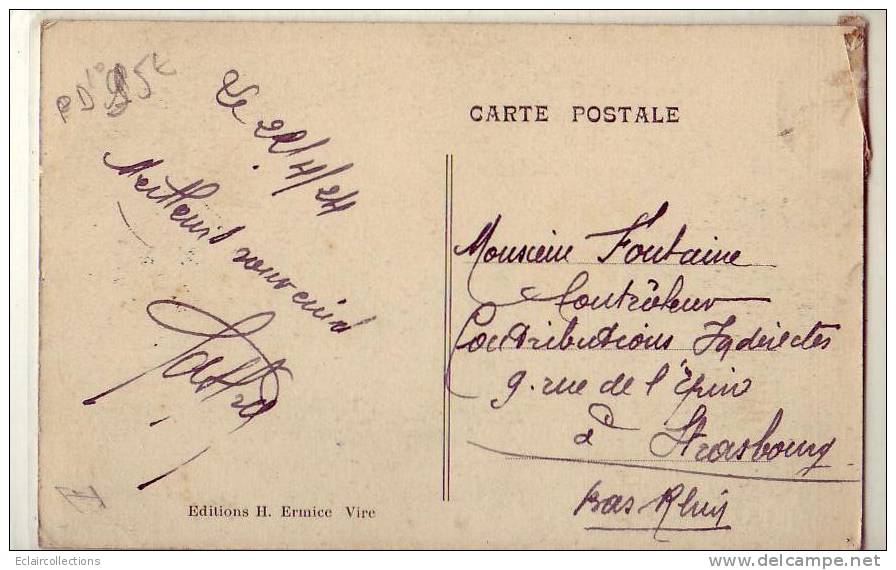 Le 22/4/24
Meilleurs souvenirs
CARTE POSTALE
Monsieur Fontaine
Contrôleur
Contributions Indirectes
9. rue de l'Epine
à Strasbourg
Bas-Rhin
Editions H. Ermice Vire
Eclaircollections
delcampe.net